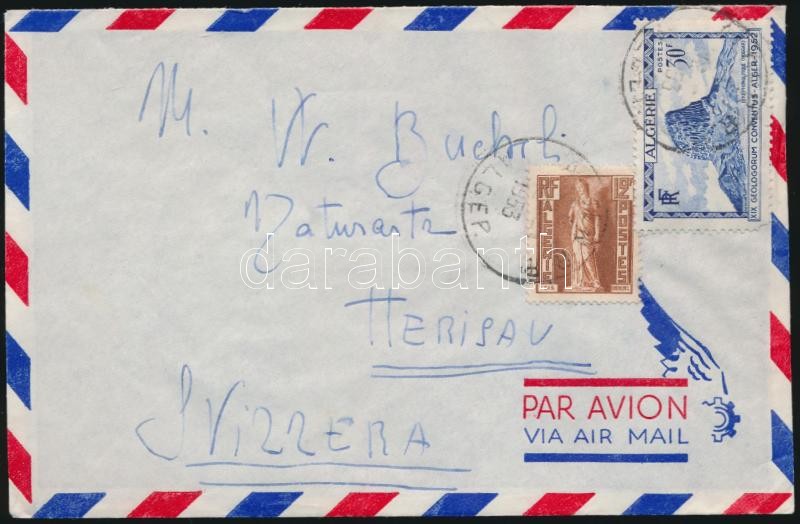 M. W. Bucheli
Naturarzt
HERISAU
SVIZZERA
PAR AVION
VIA AIR MAIL
RF
12F
ALGERIE
POSTES
POSTES 30F
ALGÉRIE
RF
XIX GEOLOGORUM CONVENTUS-ALGER-1952
ALGER
1953
darabanth